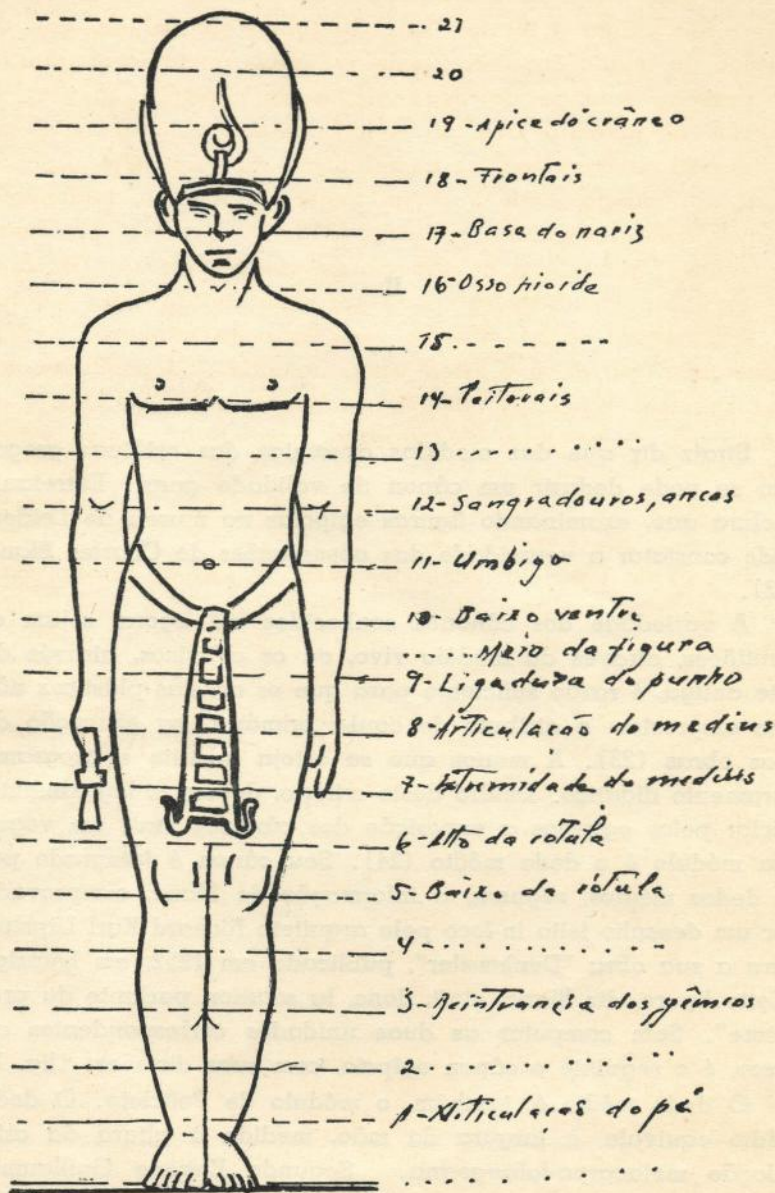 21
20
19-Apice do crâneo
18-Frontais
17-Base do nariz
16-Osso hioide
15.
14-Peitorais
13
12-Sangradouros, ancas
11-Umbigo
10-Baixo ventre
Meio da figura
9-Ligadura do punho
8-Articulação do medius
7-Extremidade do medius
6-Alto da rótula
5-Baixo da rótula
4
3-Reintrancia dos gêmeos
2
1-Articulacas do pé